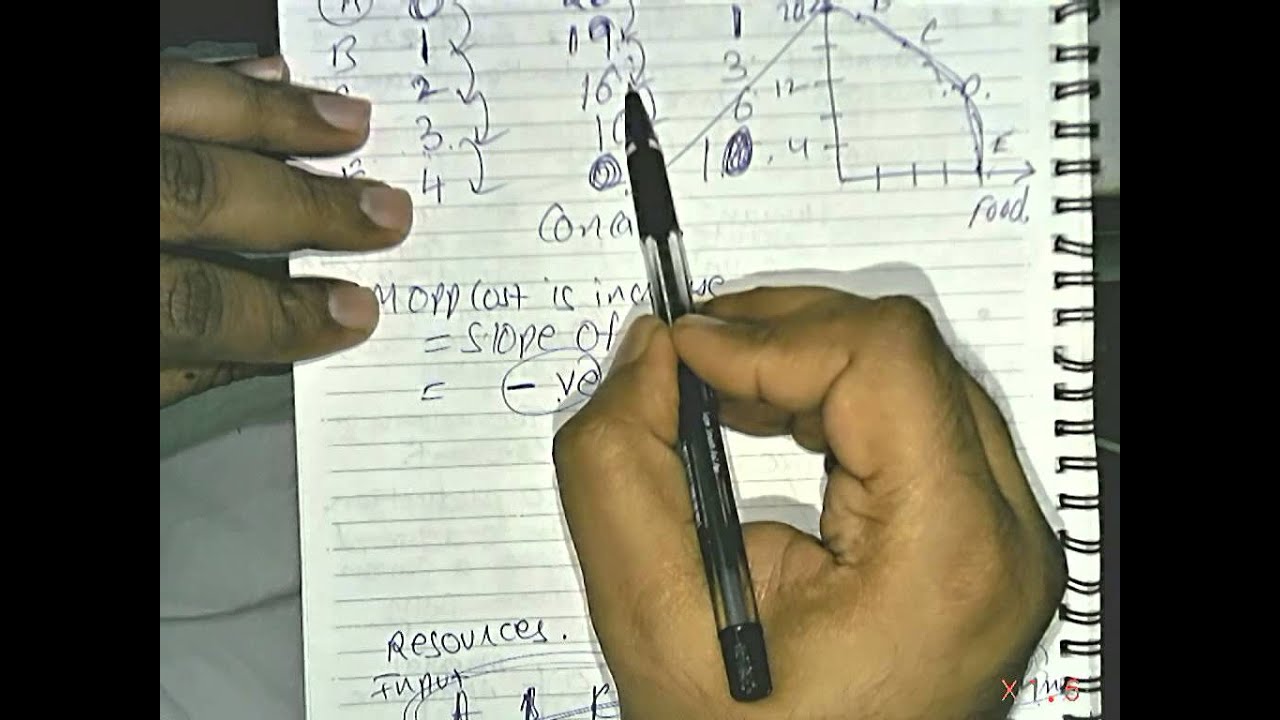 A 0 20
B 1 19 1
2 16 3
3 10 6
4 0 10
20
12
4
B
C
D
E
Food.
Conca
M opp Cost is increase
= Slope of
= - ve
Resources.
Input
A B
X 1.6